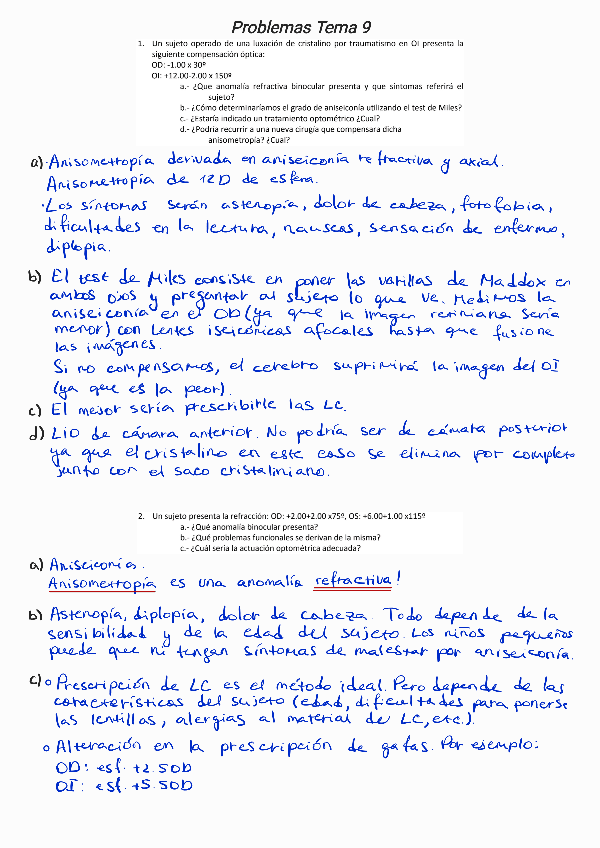 Problemas Tema 9
1. Un sujeto operado de una luxación de cristalino por traumatismo en OI presenta la
siguiente compensación óptica:
OD: -1.00 x 30º
OI: +12.00-2.00 x 150º
a.- ¿Que anomalía refractiva binocular presenta y que síntomas referirá el
sujeto?
b.- ¿Cómo determinaríamos el grado de aniseiconía utilizando el test de Miles?
c.- ¿Estaría indicado un tratamiento optométrico ¿Cual?
d.- ¿Podría recurrir a una nueva cirugía que compensara dicha
anisometropía? ¿Cual?
a) · Anisometropía derivada en aniseiconía refractiva y axial.
Anisometropía de 12D de esfera.
· Los síntomas serán astenopía, dolor de cabeza, fotofobia,
dificultades en la lectura, nauseas, sensación de enfermo,
diplopia.
b) El test de Miles consiste en poner las varillas de Maddox en
ambos ojos y preguntar al sujeto lo que ve. Medimos la
aniseiconía en el OD (ya que la imagen retiniana sería
menor) con lentes iseicónicas afocales hasta que fusione
las imágenes.
Si no compensamos, el cerebro suprimirá la imagen del OI
(ya que es la peor).
c) El mejor sería prescribirle las LC.
d) LIO de cámara anterior. No podría ser de cámara posterior
ya que el cristalino en este caso se elimina por completo
junto con el saco cristaliniano.
2. Un sujeto presenta la refracción: OD: +2.00+2.00 x75º, OS: +6.00+1.00 x115º
a.- ¿Qué anomalía binocular presenta?
b.- ¿Qué problemas funcionales se derivan de la misma?
c.- ¿Cuál sería la actuación optométrica adecuada?
a) Aniseiconía.
Anisometropía es una anomalía refractiva!
b) Astenopía, diplopía, dolor de cabeza. Todo depende de la
sensibilidad y de la edad del sujeto. Los niños pequeños
puede que ni tengan síntomas de malestar por aniseiconía.
c) o Prescripción de LC es el método ideal. Pero depende de las
características del sujeto (edad, dificultades para ponerse
las lentillas, alergias al material de LC, etc.).
o Alteración en la prescripción de gafas. Por ejemplo:
OD: esf. +2.50D
OI: esf. +5.50D